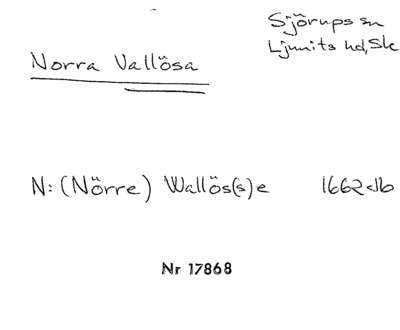 Sjörups sn
Ljunits hd, Sk
Norra Vallösa
N: (Nörre) Wallös(s)e 1662 Jb
Nr 17868